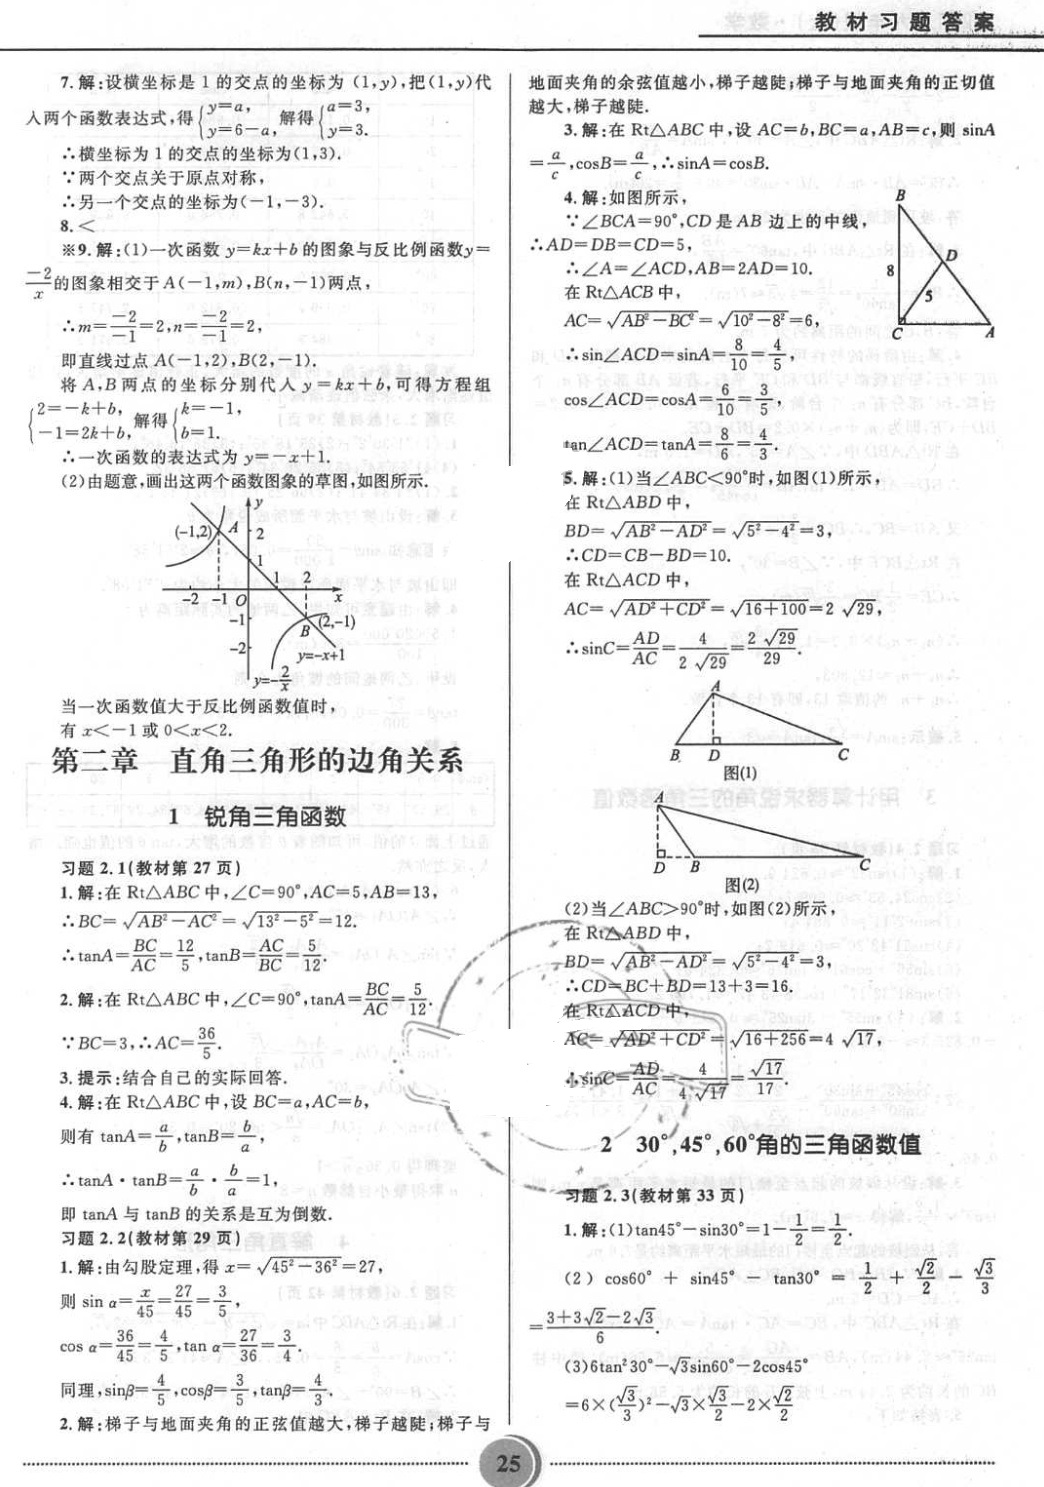 教材习题答案
7.解:设横坐标是1的交点的坐标为(1,y),把(1,y)代
入两个函数表达式,得{y=a, y=6-a, 解得{a=3, y=3.
∴横坐标为1的交点的坐标为(1,3).
∵两个交点关于原点对称,
∴另一个交点的坐标为(-1,-3).
8.<
※9.解:(1)一次函数y=kx+b的图象与反比例函数y=
-2/x的图象相交于A(-1,m),B(n,-1)两点,
∴m=-2/-1=2,n=-2/-1=2,
即直线过点A(-1,2),B(2,-1).
将A,B两点的坐标分别代入y=kx+b,可得方程组
{2=-k+b, -1=2k+b, 解得{k=-1, b=1.
∴一次函数的表达式为y=-x+1.
(2)由题意,画出这两个函数图象的草图,如图所示.
y
(-1,2) A 2
1 1 2
-2 -1 O x
-1 B (2,-1)
-2 y=-x+1
y=-2/x
当一次函数值大于反比例函数值时,
有x<-1或0<x<2.
第二章 直角三角形的边角关系
1 锐角三角函数
习题2.1(教材第27页)
1.解:在Rt△ABC中,∠C=90°,AC=5,AB=13,
∴BC=√(AB²-AC²)=√(13²-5²)=12.
∴tanA=BC/AC=12/5,tanB=AC/BC=5/12.
2.解:在Rt△ABC中,∠C=90°,tanA=BC/AC=5/12.
∵BC=3,∴AC=36/5.
3.提示:结合自己的实际回答.
4.解:在Rt△ABC中,设BC=a,AC=b,
则有tanA=a/b,tanB=b/a,
∴tanA·tanB=a/b·b/a=1,
即tanA与tanB的关系是互为倒数.
习题2.2(教材第29页)
1.解:由勾股定理,得x=√(45²-36²)=27,
则sin α=x/45=27/45=3/5,
cos α=36/45=4/5,tan α=27/36=3/4.
同理,sinβ=4/5,cosβ=3/5,tanβ=4/3.
2.解:梯子与地面夹角的正弦值越大,梯子越陡;梯子与
地面夹角的余弦值越小,梯子越陡;梯子与地面夹角的正切值
越大,梯子越陡.
3.解:在Rt△ABC中,设AC=b,BC=a,AB=c,则sinA
=a/c,cosB=a/c,∴sinA=cosB.
4.解:如图所示,
∵∠BCA=90°,CD是AB边上的中线,
∴AD=DB=CD=5,
∴∠A=∠ACD,AB=2AD=10.
在Rt△ACB中,
AC=√(AB²-BC²)=√(10²-8²)=6,
∴sin∠ACD=sinA=8/10=4/5,
cos∠ACD=cosA=6/10=3/5,
tan∠ACD=tanA=8/6=4/3.
B
D
8
5
C A
5.解:(1)当∠ABC<90°时,如图(1)所示,
在Rt△ABD中,
BD=√(AB²-AD²)=√(5²-4²)=3,
∴CD=CB-BD=10.
在Rt△ACD中,
AC=√(AD²+CD²)=√(16+100)=2√29,
∴sinC=AD/AC=4/(2√29)=2√29/29.
A
B D C
图(1)
A
D B C
图(2)
(2)当∠ABC>90°时,如图(2)所示,
在Rt△ABD中,
BD=√(AB²-AD²)=√(5²-4²)=3,
∴CD=BC+BD=13+3=16.
在Rt△ACD中,
AC=√(AD²+CD²)=√(16+256)=4√17,
∴sinC=AD/AC=4/(4√17)=√17/17.
2 30°,45°,60°角的三角函数值
习题2.3(教材第33页)
1.解:(1)tan45°-sin30°=1-1/2=1/2.
(2) cos60° + sin45° - tan30° = 1/2 + √2/2 - √3/3
=(3+3√2-2√3)/6.
(3)6tan²30°-√3sin60°-2cos45°
=6×(√3/3)²-√3×√3/2-2×√2/2
25